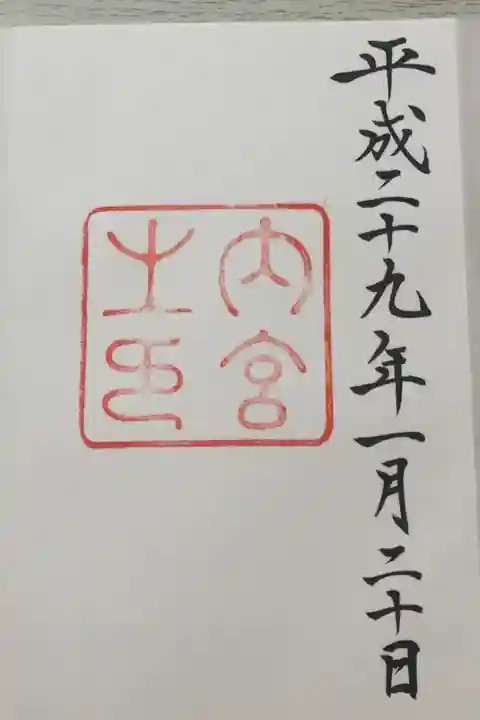 平成二十九年一月二十日
内宮
之印